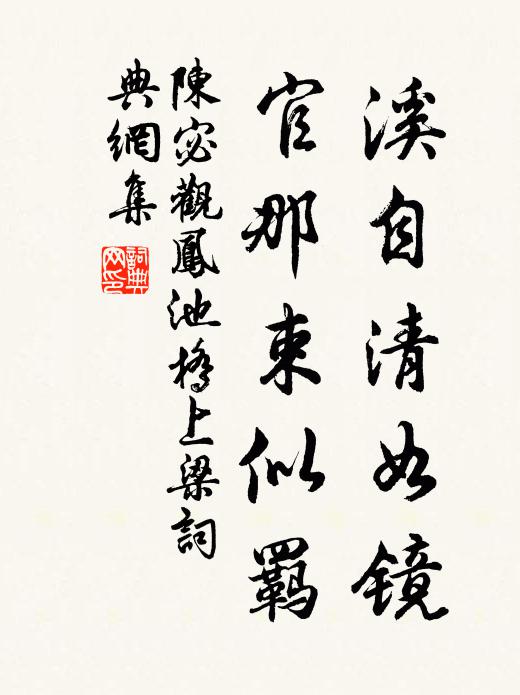 溪自清如镜
官那束似羈
陳宓觀鳳池橋上梁詞
典網集
詞典網印